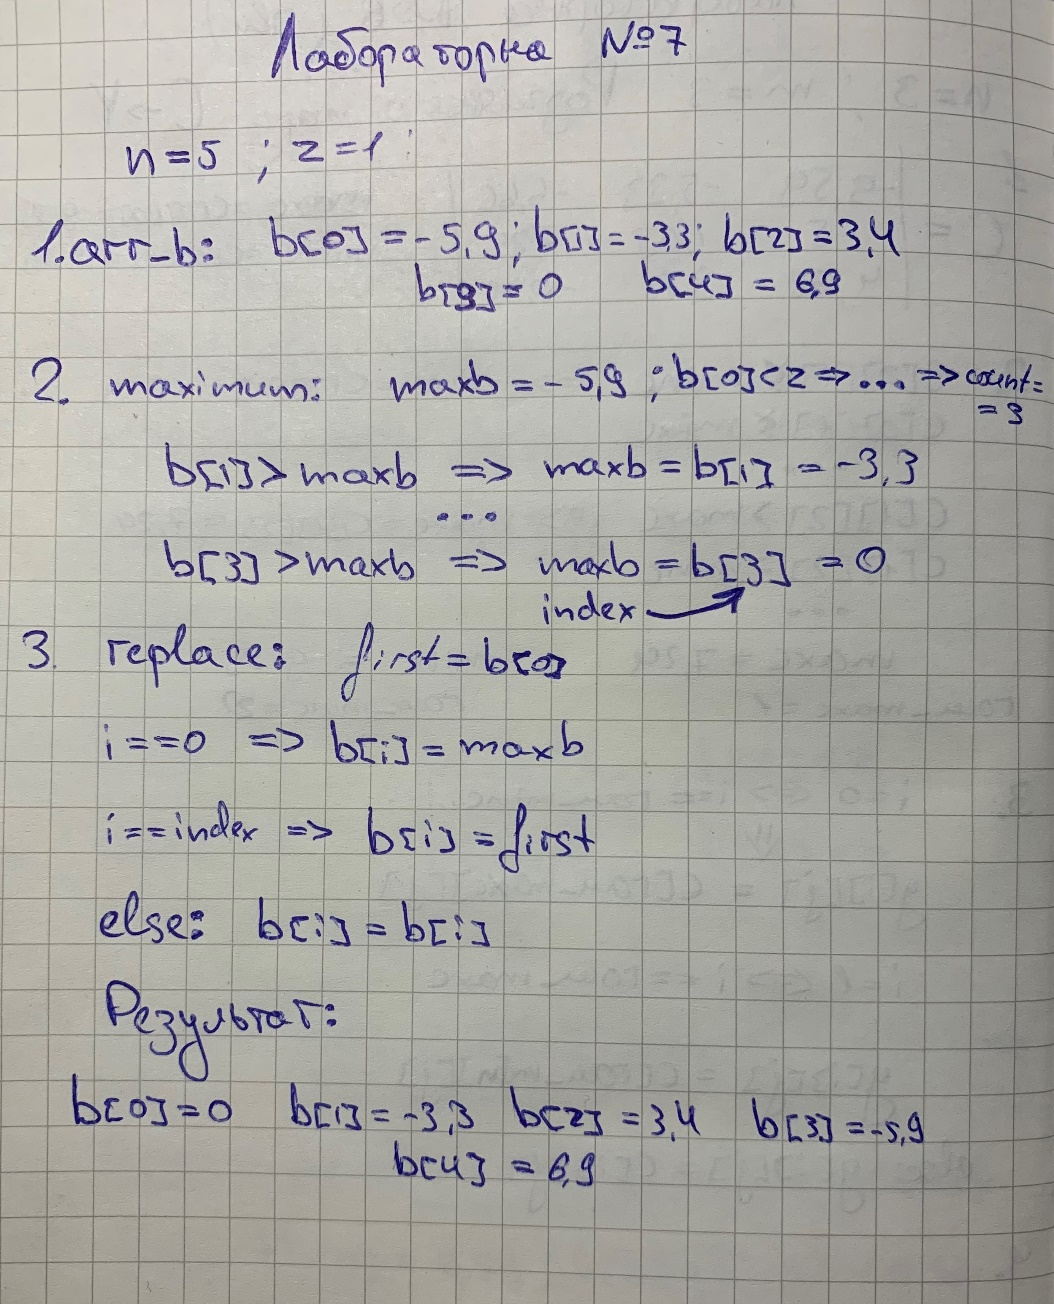 Лабораторна №7
n=5 ; z=1
1. arr_b: b[0] = -5,9; b[1] = -3,3; b[2] = 3,4
b[3] = 0 b[4] = 6,9
2. maximum: maxb = -5,9 ; b[0]<z => ... => count=
= 3
b[1] > maxb => maxb = b[1] = -3,3
...
b[3] > maxb => maxb = b[3] = 0
index
3. replace: first = b[0]
i==0 => b[i] = maxb
i==index => b[i] = first
else: b[i] = b[i]
Результат:
b[0] = 0 b[1] = -3,3 b[2] = 3,4 b[3] = -5,9
b[4] = 6,9